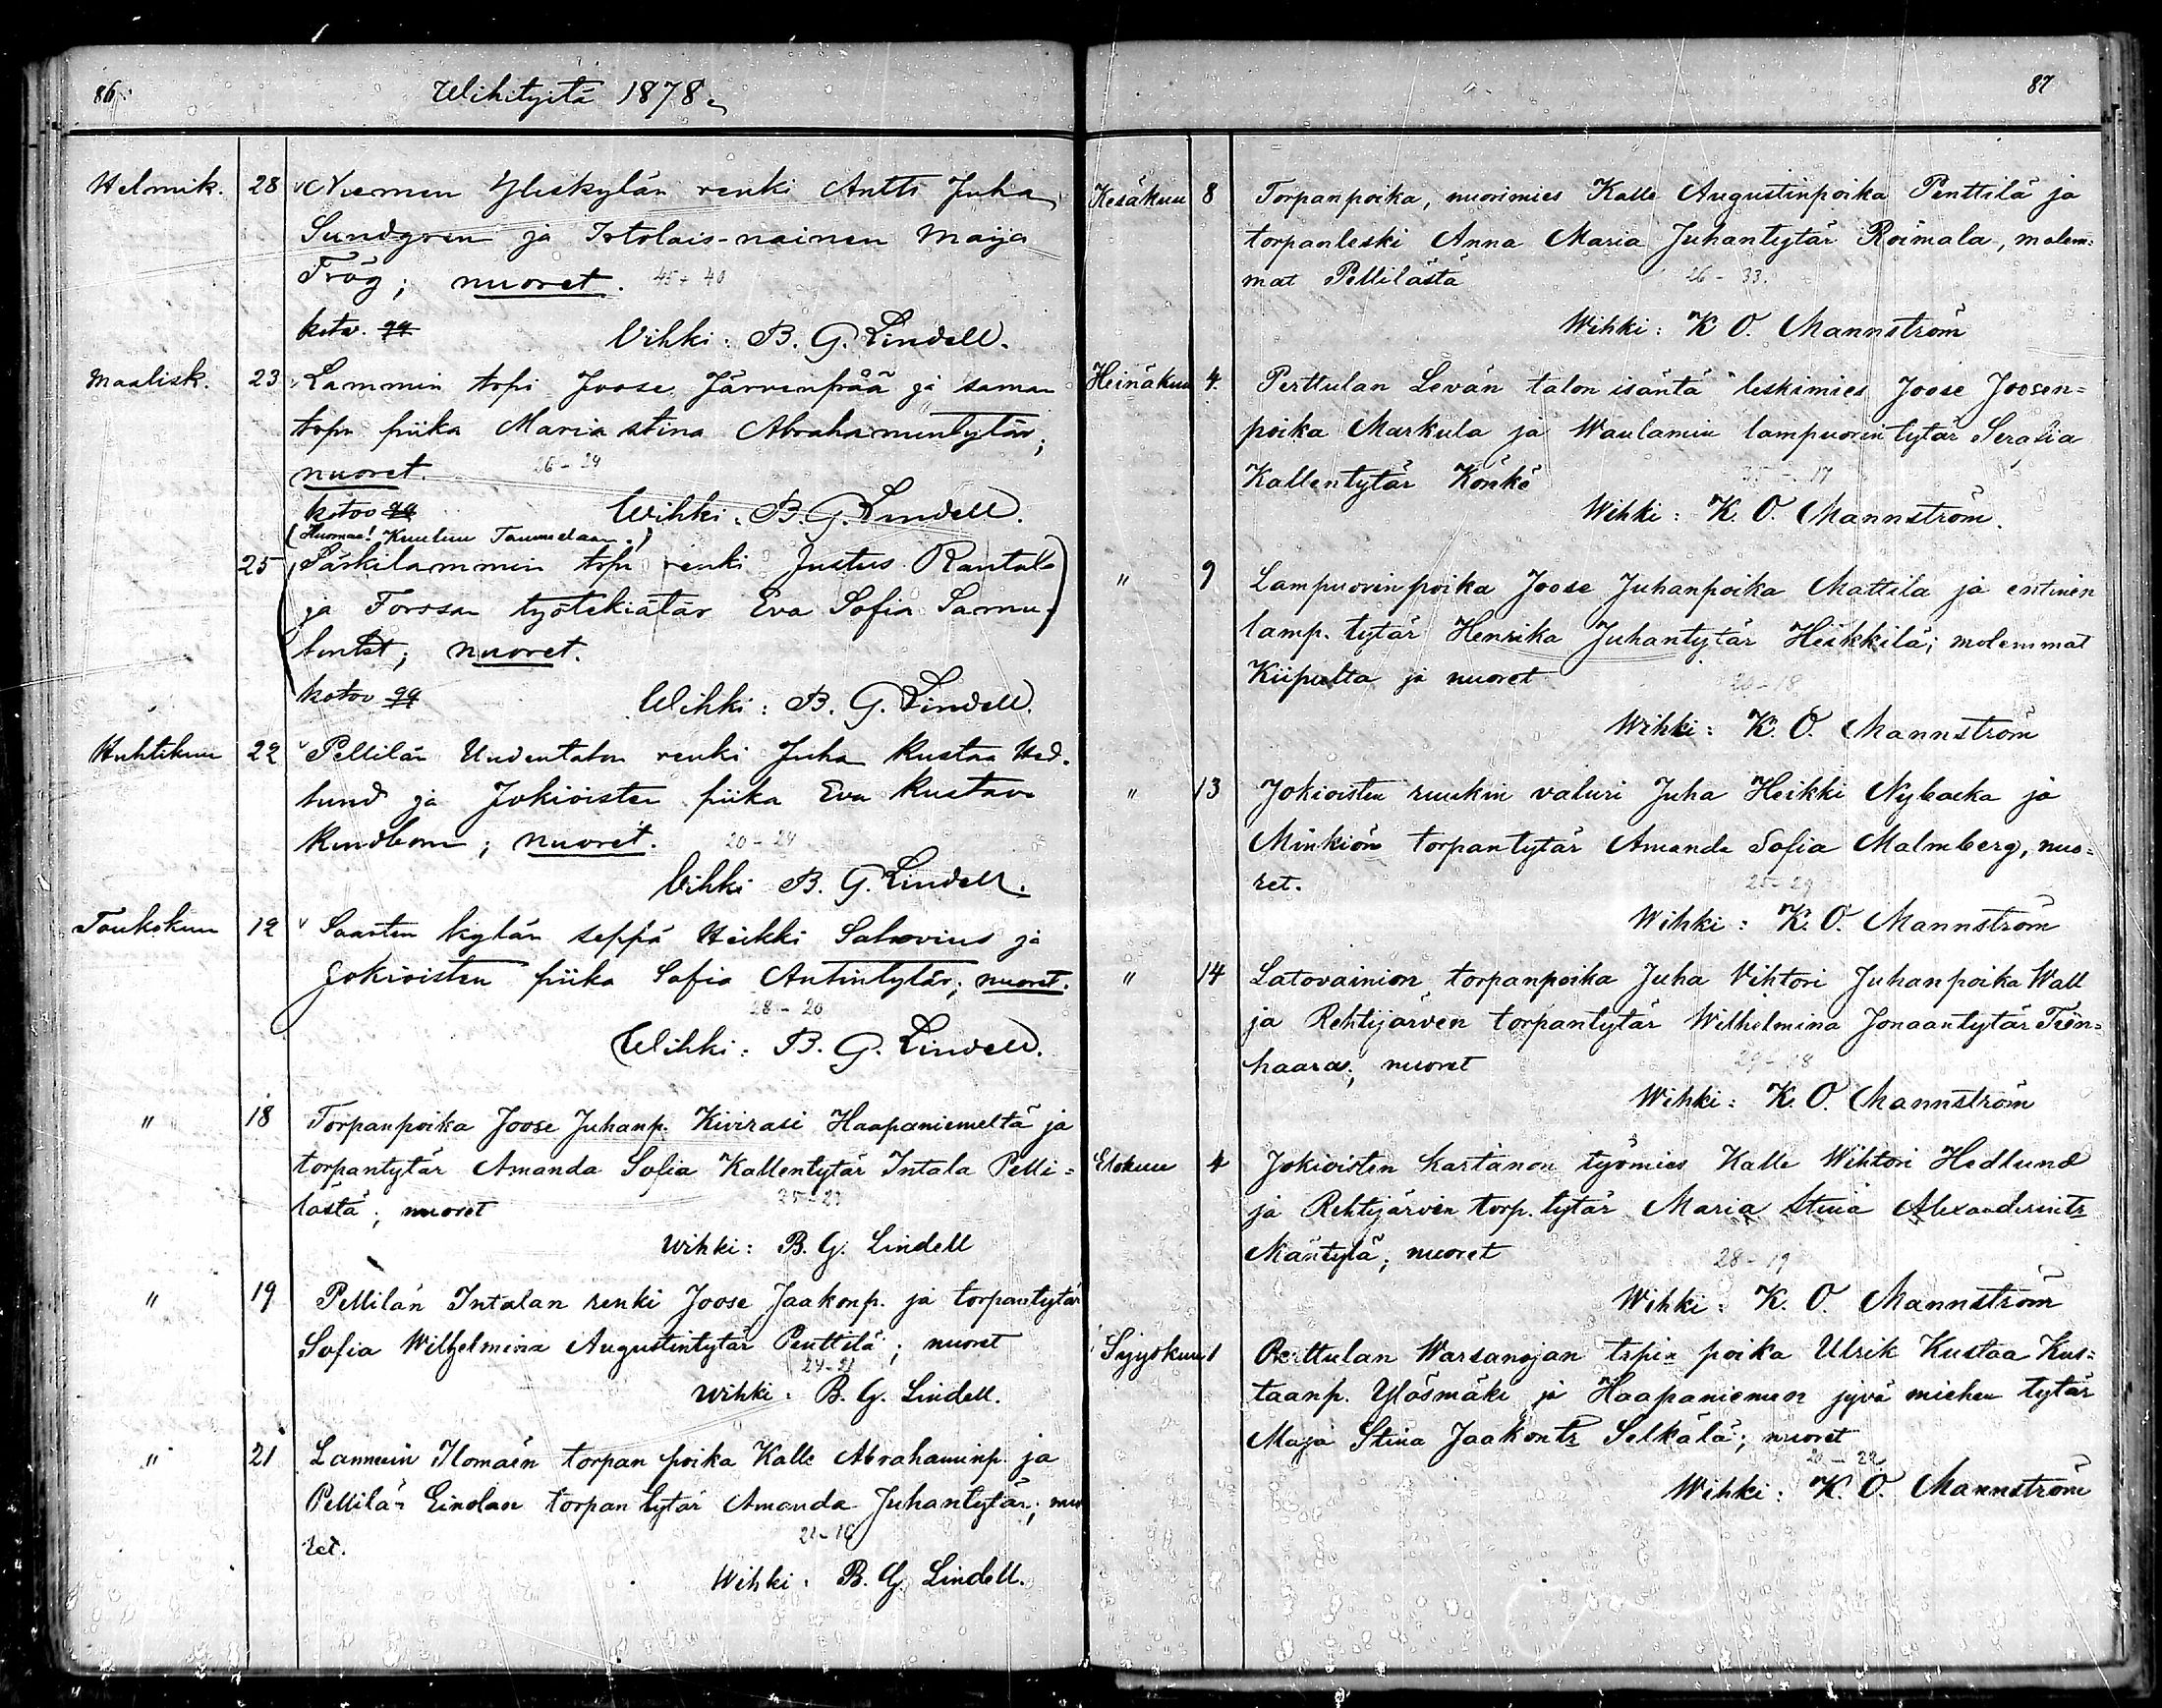 86
Wihityitä 1878
Helmik. 28 Niemen Yliskylän renki Antti Juha
Sundgren ja Itolais-nainen Maija
Tråg; nuoret. 45 - 40
Vihki: B. G. Lindell.
Maalisk. 23 Lammin torp. Joose Järvenpää ja saman
torp. piika Maria Stina Abrahamintytär;
nuoret. 26 - 24
Wihki. B. G. Lindell.
(Huomaa! Kuuluu Tammelaan.)
25 Särkilammin torp. renki Justus Rantala
ja Forssan työtekiätär Eva Sofia Samu-
nuoret.
Wihki: B. G. Lindell.
Huhtikuu 22 Pellilän Uudentalon renki Juha Kustaa Hed-
lund ja Jokioisten piika Eva Kustava
nuoret. 20 - 24
Vihki B. G. Lindell.
Toukokuu 12 Saarten kylän seppä Heikki Salovius ja
Jokioisten piika Sofia Antintytär; nuoret.
28 - 20
Wihki: B. G. Lindell.
" 18 Torpanpoika Joose Juhanp. Kivirasi Haapaniemeltä ja
torpantytär Amanda Sofia Kallentytär Intala Pelli-
lästä; nuoret
Wihki: B. G. Lindell
" 19 Pellilän Intalan renki Joose Jaakonp. ja torpantytär
Sofia Wilhelmina Augustintytär Penttilä; nuoret
24 - 21
Wihki: B. G. Lindell.
" 21 Lammin Ilomäen torpan poika Kalle Abrahaminp. ja
Pellilän Einolan torpan tytär Amanda Juhantytär; nuo
ret.
Wihki: B. G. Lindell.
87
Kesäkuu 8 Torpanpoika, nuorimies Kalle Augustinpoika Penttilä ja
torpanleski Anna Maria Juhantytär Roimala, molem-
mat Pellilästä 26 - 33.
Wihki: K. O. Mannström
Heinäkuu 4. Perttulan Levän talon isäntä leskimies Joose Joosen-
poika Markula ja Waulamin lampuorin tytär Serafia
Kallentytär Könkö 35 - 17
Wihki: K. O. Mannström.
" 9 Lampuorinpoika Joose Juhanpoika Mattila ja entinen
lamp. tytär Henrika Juhantytär Heikkilä; molemmat
Kiipulta ja nuoret 20 - 18
Wihki: K. O. Mannström
" 13 Jokioisten ruukin valuri Juha Heikki Nybacka ja
Minkiön torpantytär Amanda Sofia Malmberg, nuo-
ret. 25 - 29
Wihki: K. O. Mannström
" 14 Latovainion torpanpoika Juha Vihtori Juhanpoika Wall
ja Rehtijärven torpantytär Wilhelmina Jonaantytär Tien-
haara; nuoret 29 - 18
Wihki: K. O. Mannström
Elokuu 4 Jokioisten kartanon työmies Kalle Wihtori Hedlund
ja Rehtijärven torp. tytär Maria Stina Alexanderintr
Mäntylä; nuoret 28 - 19
Wihki: K. O. Mannström
Syyskuu 1 Perttulan Warsanojan torpin poika Ulrik Kustaa Kus-
taanp. Yläsmäki ja Haapaniemen jyvä miehen tytär
Maja Stina Jaakontr Selkälä; nuoret
20 - 22
Wihki: K. O. Mannström